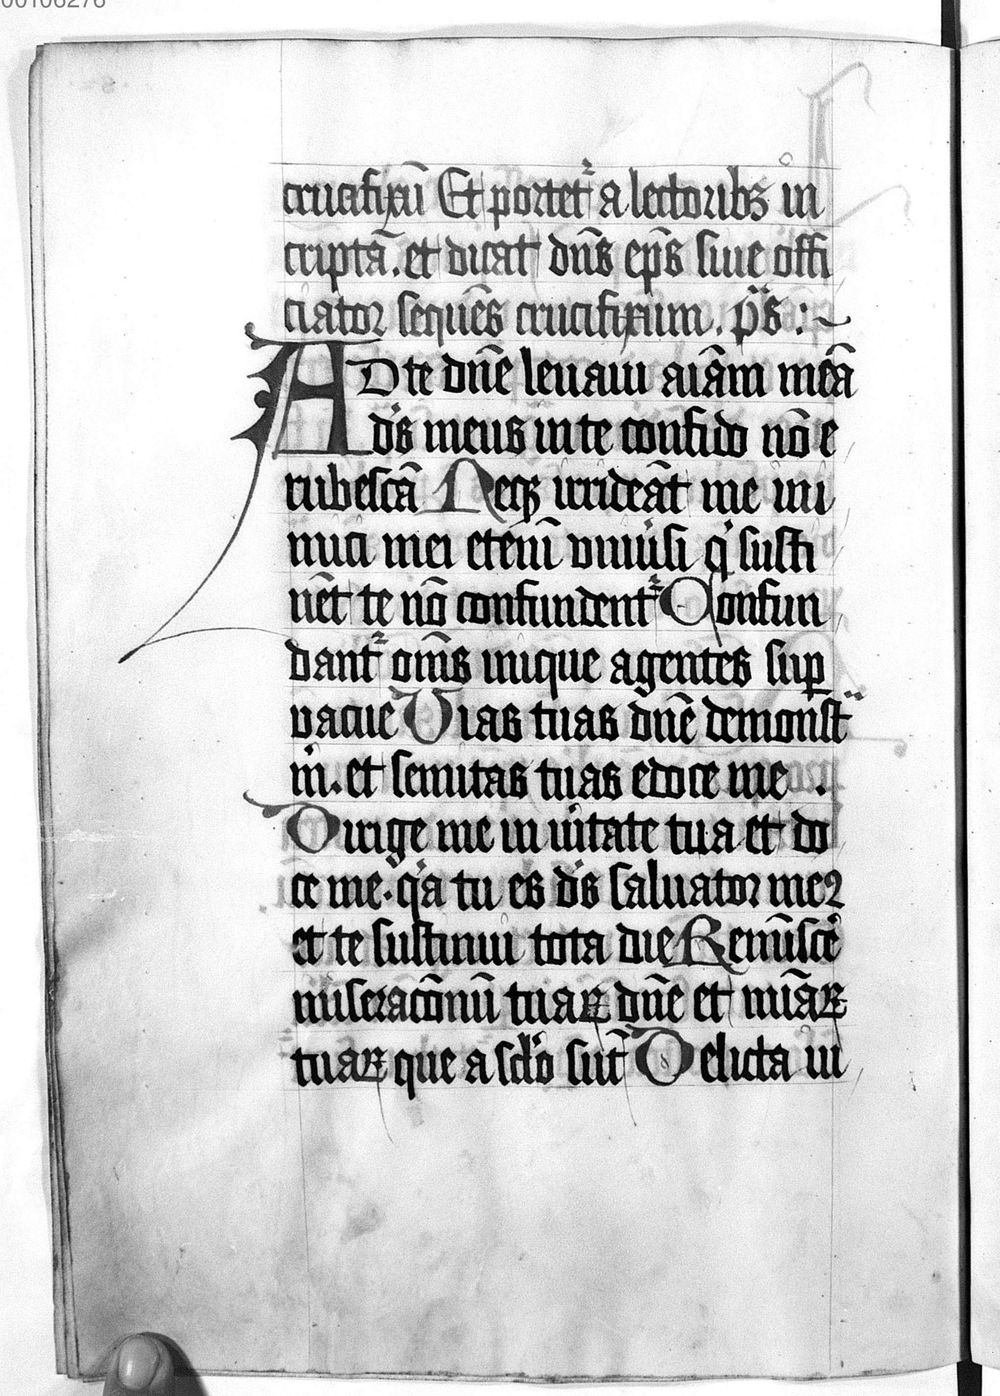 00106276
crucifixū Et portet᷑ a lectoribꝫ in
criptā. et dicat dn̄s ep̄s siue offi
ciator sequēs crucifixum. p̄s :~
AD te dn̄e leuaui aīam meā
ds̄ meus in te confido nō e
rubescā Neqꝫ irrideāt me ini
mici mei eteni̅ vniuͥsi qͥ susti
nēt te nō confundent᷑ Confun
dant᷑ om̄s inique agentes suꝑ
vacue Uias tuas dn̄e demonstᷓ
m̄. et semitas tuas edoce me .
Dirige me in uͥitate tua et do
ce me. qͥa tu es ds̄ saluator meꝰ
et te sustinui tota die Reminiscēͥ
miseracōnū tuaꝝ dn̄e et mīaꝝ
tuaꝝ que a sclō sūt Delicta iu